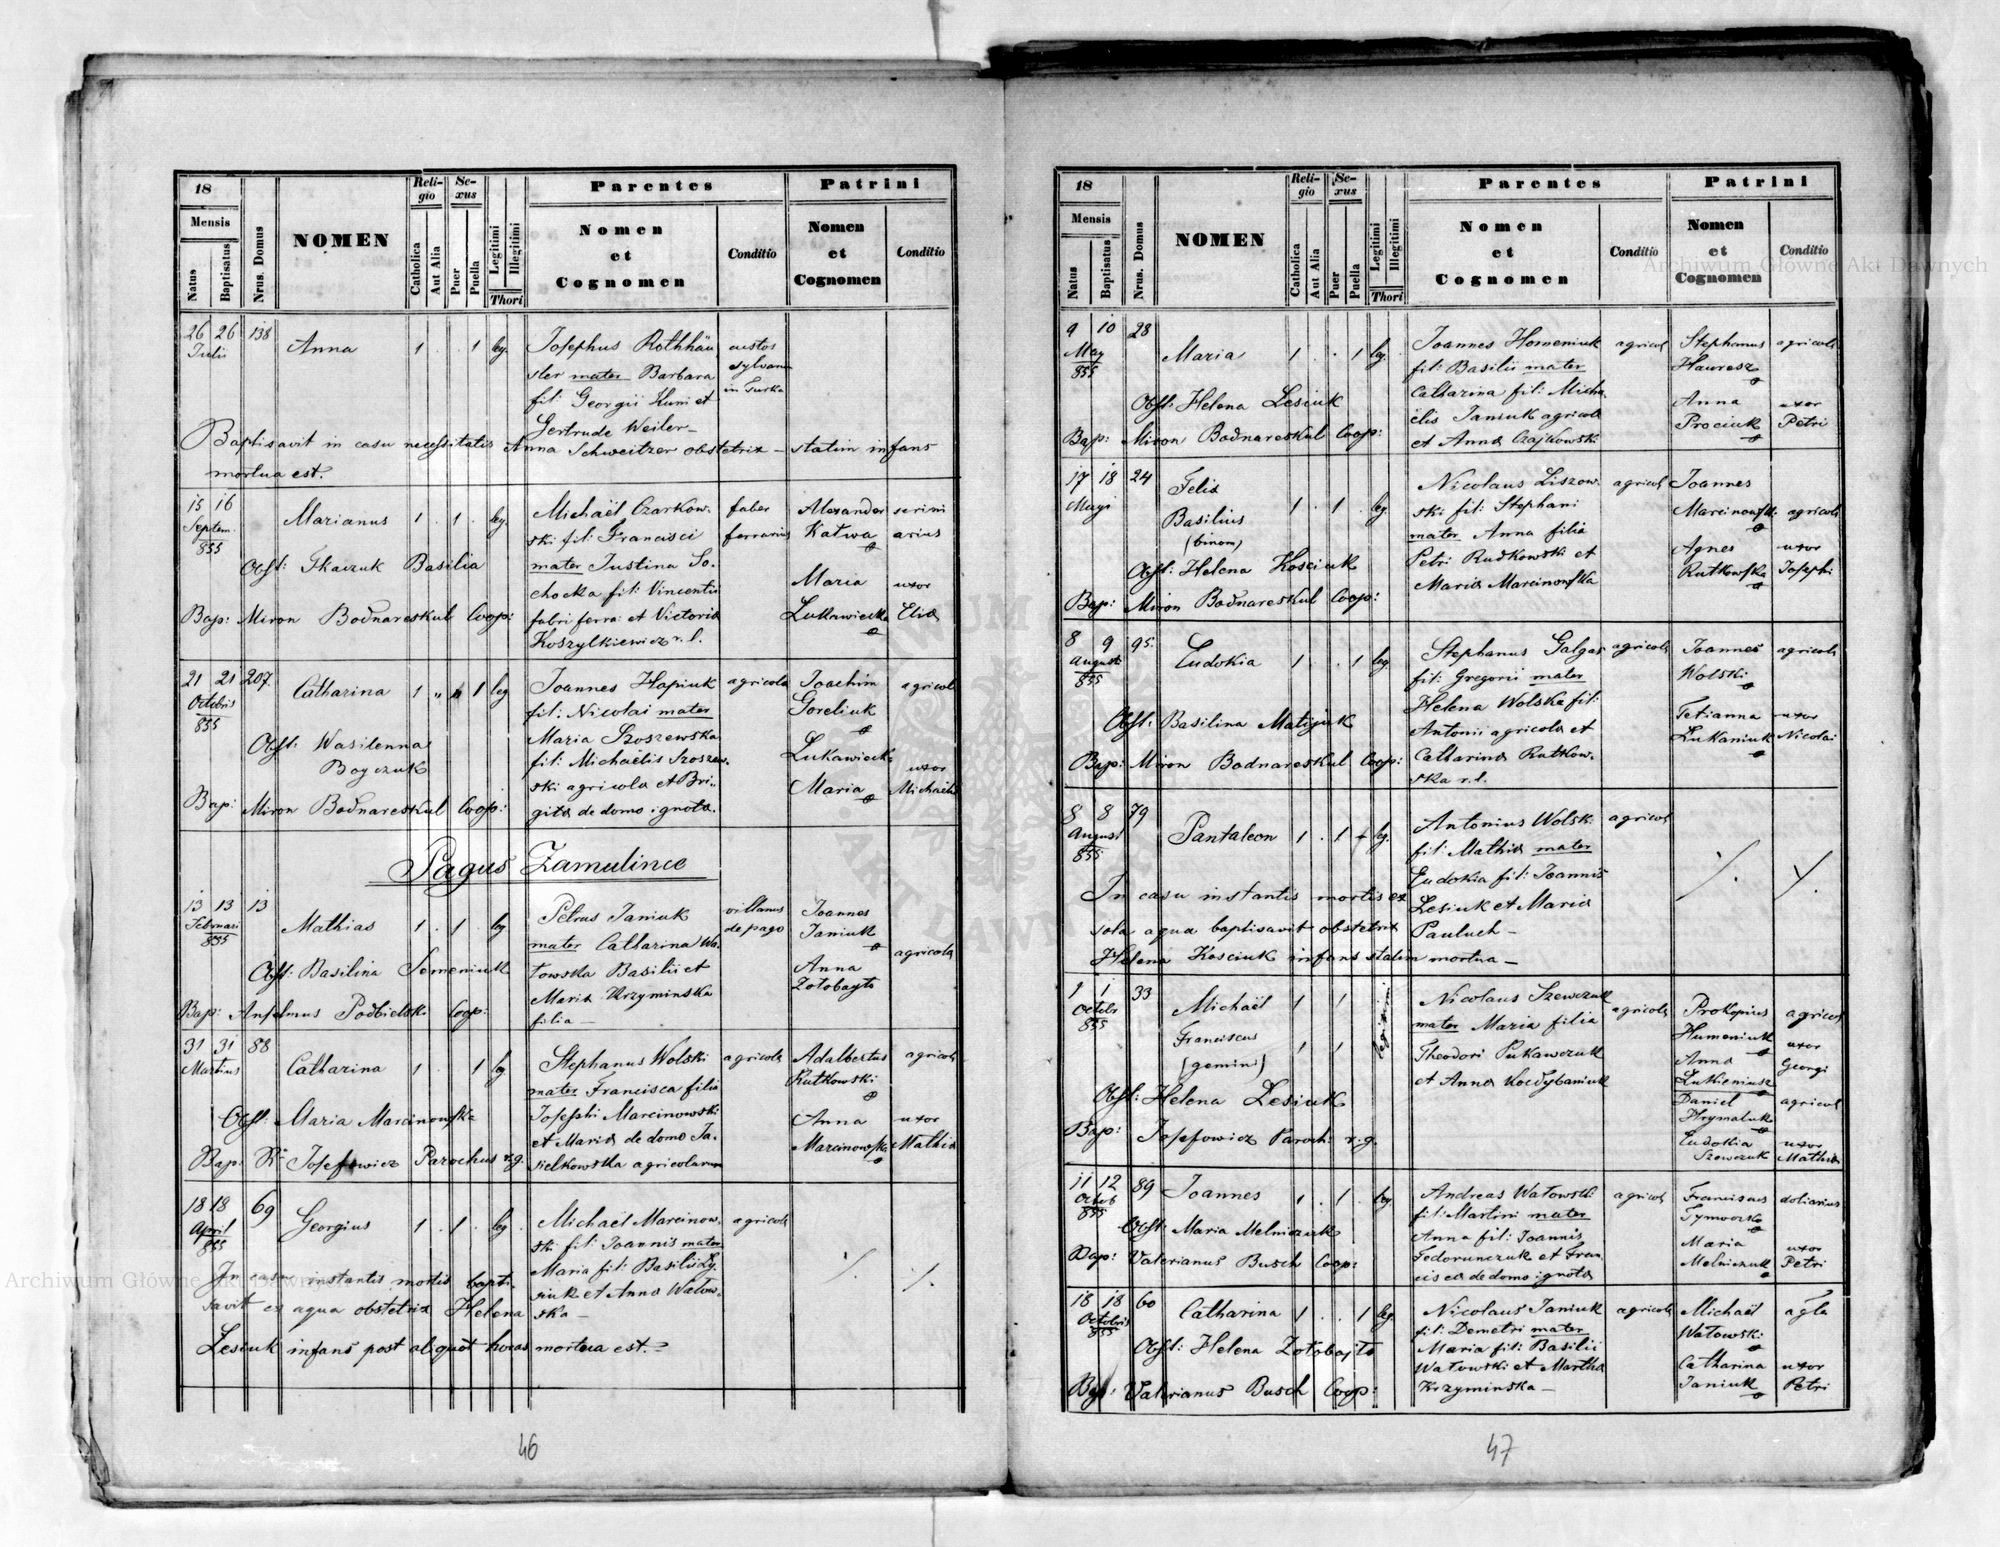 18
Mensis
Natus
Baptisatus
Nrus. Domus
NOMEN
Religio
Catholica
Aut Alia
Sexus
Puer
Puella
Legitimi
Illegitimi
Thori
Parentes
Nomen
et
Cognomen
Conditio
Patrini
Nomen
et
Cognomen
Conditio
26 26 138 Anna 1 . . 1 leg.
Julii
Josephus Rothhäu
sler mater Barbara
fil: Georgii Kuni et
Gertrude Weiler-
custos
sylvan
in Turka
Baptisavit in casu necessitatis Anna Schweitzer obstetrix - statim infans
mortua est.
15 16 Marianus 1 . 1 . leg.
Septem
855
Michaël Czarkow-
ski fil: Francisci
mater Justina So-
chocka fil: Vincentii
fabri ferra: et Victoria
Koszylkiewicz r. l.
faber
ferrarius
Alexander
Katwa
Maria
Lukawiecka
scrini
arius
uxor
Elia
Obst: Tkaczuk Basilia
Bap: Miron Bodnareskul Coop:
21 21 207. Catharina 1 " 1 leg
Octobris
855
Joannes Hapiuk
fil: Nicolai mater
Maria Szoszewska
fil: Michaëlis Szoszew-
ski agricola et Bri-
gita de domo ignota.
agricola
Joachim
Goreliuk
Lukawiecka
Maria
agricola
uxor
Michaëli
Obst: Wasilenna
Boyczuk
Bap: Miron Bodnareskul Coop:
Pagus Zamulince
13 13 13 Mathias 1 . 1 . leg
Februari
855
Petrus Janiuk
mater Catharina Wa-
towska Basilii et
Maria Krzyminska
filia -
villanus
de pago
Joannes
Janiuk
Anna
Zotobayto
agricola
Obst: Basilina Semeniuk
Bap: Anselmus Podbielski Coop:
31 31 88 Catharina 1 . . 1 leg
Martius
Stephanus Wolski
mater Francisca filia
Josephi Marcinowski
et Maria de domo Ja-
sielkowska agricolarum
agricola
Adalbertus
Rutkowski
Anna
Marcinowska
agricola
uxor
Mathia
Obst: Maria Marcinowska
Bap: Josefowicz Parochus r. g.
18 18 69 Georgius 1 . 1 . leg.
April
855
Michaël Marcinow-
ski fil: Joannis mater
Maria fil: Basilii Ly-
siuk et Anna Watow-
ska -
agricola
In casu instantis mortis bapti-
savit ex aqua obstetrix Helena
Lesiuk infans post aliquot horas mortua est.
46
18
Mensis
Natus
Baptisatus
Nrus. Domus
NOMEN
Religio
Catholica
Aut Alia
Sexus
Puer
Puella
Legitimi
Illegitimi
Thori
Parentes
Nomen
et
Cognomen
Conditio
Patrini
Nomen
et
Cognomen
Conditio
9 10 28 Maria 1 . . 1 leg
May
855
Joannes Homeniuk
fil: Basilii mater
Catharina fil: Micha
ëlis Janiuk agricola
et Anna Czajkowsk
agricol
Stephanus
Hawresz
Anna
Prociuk
agricola
uxor
Petri
Obst: Helena Lesiuk
Bap: Miron Bodnareskul Coop:
17 18 24 Felix
Basilius
(binom)
1 . 1 . leg
Maji
Nicolaus Liszow-
ski fil: Stephani
mater Anna filia
Petri Rudkowski et
Maria Marcinowska
agricol
Joannes
Marcinowski
Agnes
Rutkowska
agricola
uxor
Josephi
Obst: Helena Kosciuk
Bap: Miron Bodnareskul Coop:
8 9 95. Eudokia 1 . . 1 leg
Augusti
855
Stephanus Galgas
fil: Gregorii mater
Helena Wolska fil:
Antonii agricola et
Catharina Rutkow-
ska r. l.
agricola
Joannes
Wolski
Tetianna
Lukaniuk
agricola
uxor
Nicolai
Obst: Basilina Matijuk
Bap: Miron Bodnareskul Coop:
8 8 79 Pantaleon 1 . 1 leg.
August
855
Antonius Wolsk
fil: Mathia mater
Eudokia fil: Joannis
Lesiuk et Maria
Pauluch -
agricol
In casu instantis mortis ex
sola aqua baptisavit obstetrix
Helena Kosciuk infans statim mortua -
1 1 33 Michaël 1 1
Octobr
855
Franciscus 1 1
(gemini)
legitimi
Nicolaus Szewczuk
mater Maria filia
Theodori Pukawczuk
et Anna Kocdybaniuk
agricola
Prokopius
Humeniuk
Anna
Lukieniusz
Daniel
Hrymaluk
Eudokia
Szewczuk
agricol
uxor
Georgi
agricol
uxor
Mathia
Obst: Helena Lesiuk
Bap: Josefowicz Paroch: r. g.
11 12 89 Joannes 1 . 1 . leg
Octob
855
Andreas Watowski
fil: Martini mater
Anna fil: Joannis
Fedorunczuk et Fran-
cisca de domo ignota
agricol
Franciscus
Tymoczko
Maria
Melniczuk
doliarius
uxor
Petri
Obst: Maria Melniczuk
Bap: Valerianus Busch Coop:
18 18 60 Catharina 1 . . 1 leg
Octobris
855
Nicolaus Janiuk
fil: Demetri mater
Maria fil: Basilii
Watowski et Martha
Krzyminska -
agricola
Michaël
Watowski
Catharina
Janiuk
agla
uxor
Petri
Obst: Helena Zotobajto
Bap: Valerianus Busch Coop:
47
Archiwum Główne Akt Dawnych
Archiwum Główne Akt Dawnych